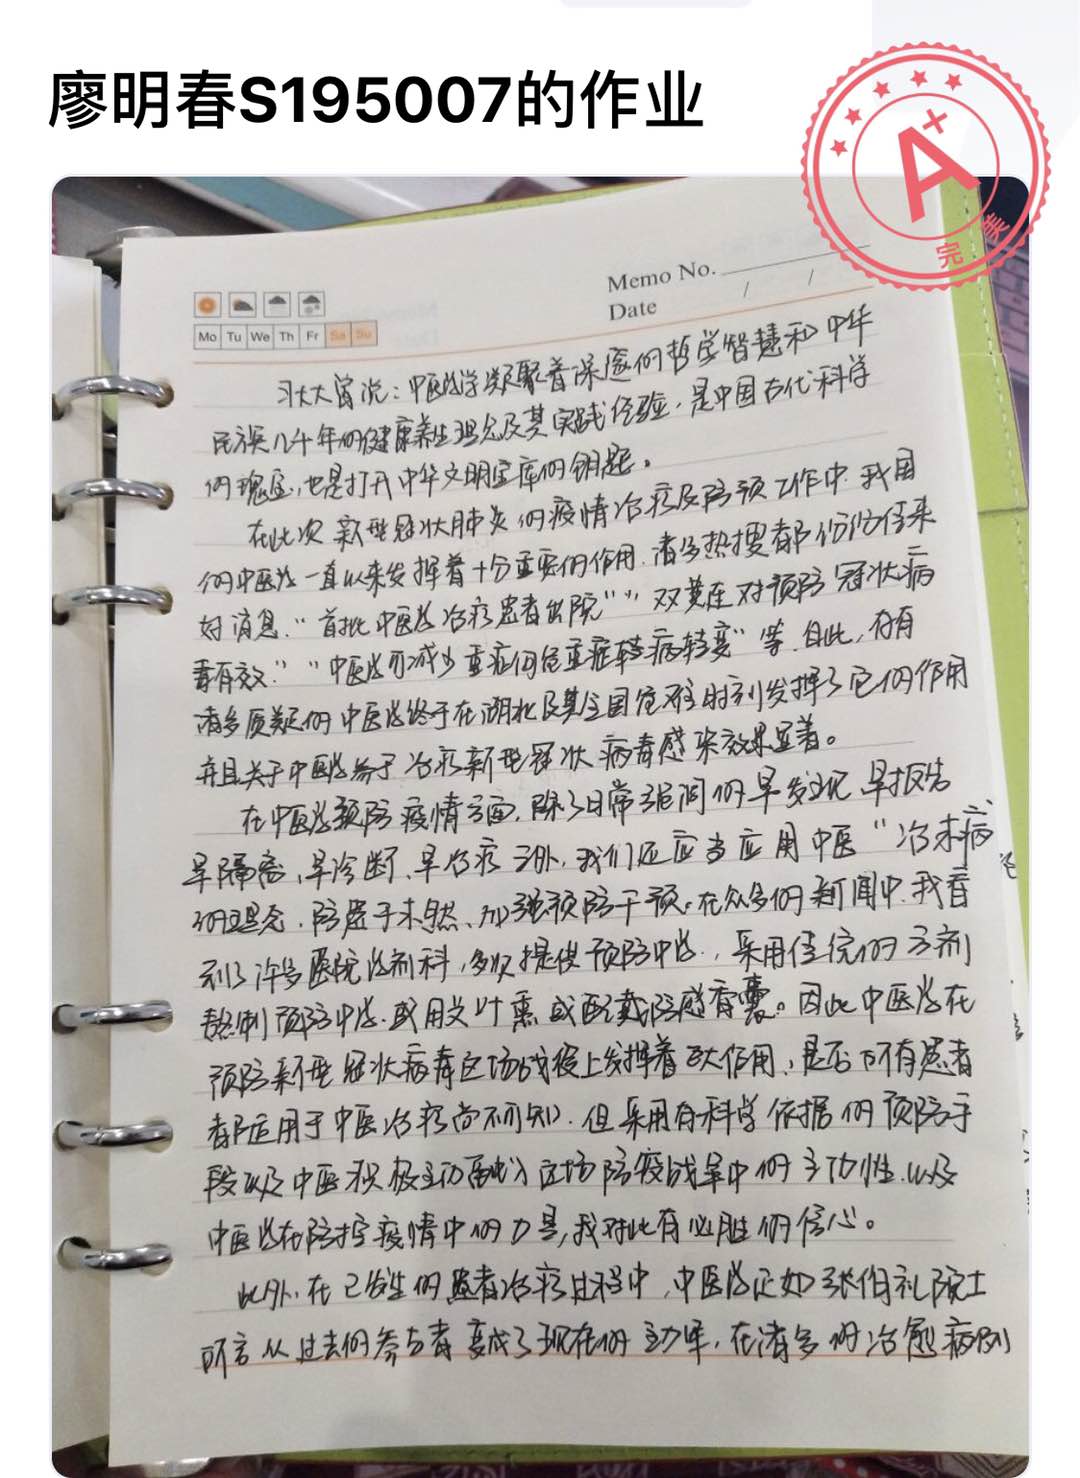 廖明春S195007的作业
A+
完美
Memo No.
Date / /
Mo Tu We Th Fr Sa Su
习大大曾说：中医药学凝聚着深邃的哲学智慧和中华
民族几千年的健康养生理念及其实践经验，是中国古代科学
的瑰宝，也是打开中华文明宝库的钥匙。
在此次新型冠状肺炎的疫情治疗及防预工作中，我国
的中医药一直以来发挥着十分重要的作用，诸多热搜都纷纷传来
好消息，“首批中医药治疗患者出院”“双黄连对预防冠状病
毒有效”“中医药可减少重症向危重症转病转变”等，自此，存有
诸多质疑的中医药终于在湖北及其全国危难时刻发挥了它的作用
并且关于中医药 治疗新型冠状病毒感染效果显著。
在中医药预防疫情方面，除了日常强调的早发现、早报告
早隔离、早诊断、早治疗之外，我们还应当应用中医“治未病”
的理念，防患于未然、加强预防干预。在众多的新闻中，我看
到了许多医院药剂科，多次提供预防中药，采用传统的方剂
熬制预防中药，或用艾叶熏或配戴防感香囊。因此中医药在
预防新型冠状病毒这场战役上发挥着巨大作用，是否所有患者
都适用于中医治疗尚不可知，但采用有科学依据的预防手
段以及中医积极主动融入这场防疫战争中的主动性，以及
中医药在防控疫情中的力量，我对此有必胜的信心。
此外，在已发生的患者治疗过程中，中医药正如张伯礼院士
所言从过去的参与者变成了现在的主力军，在诸多的治愈病例